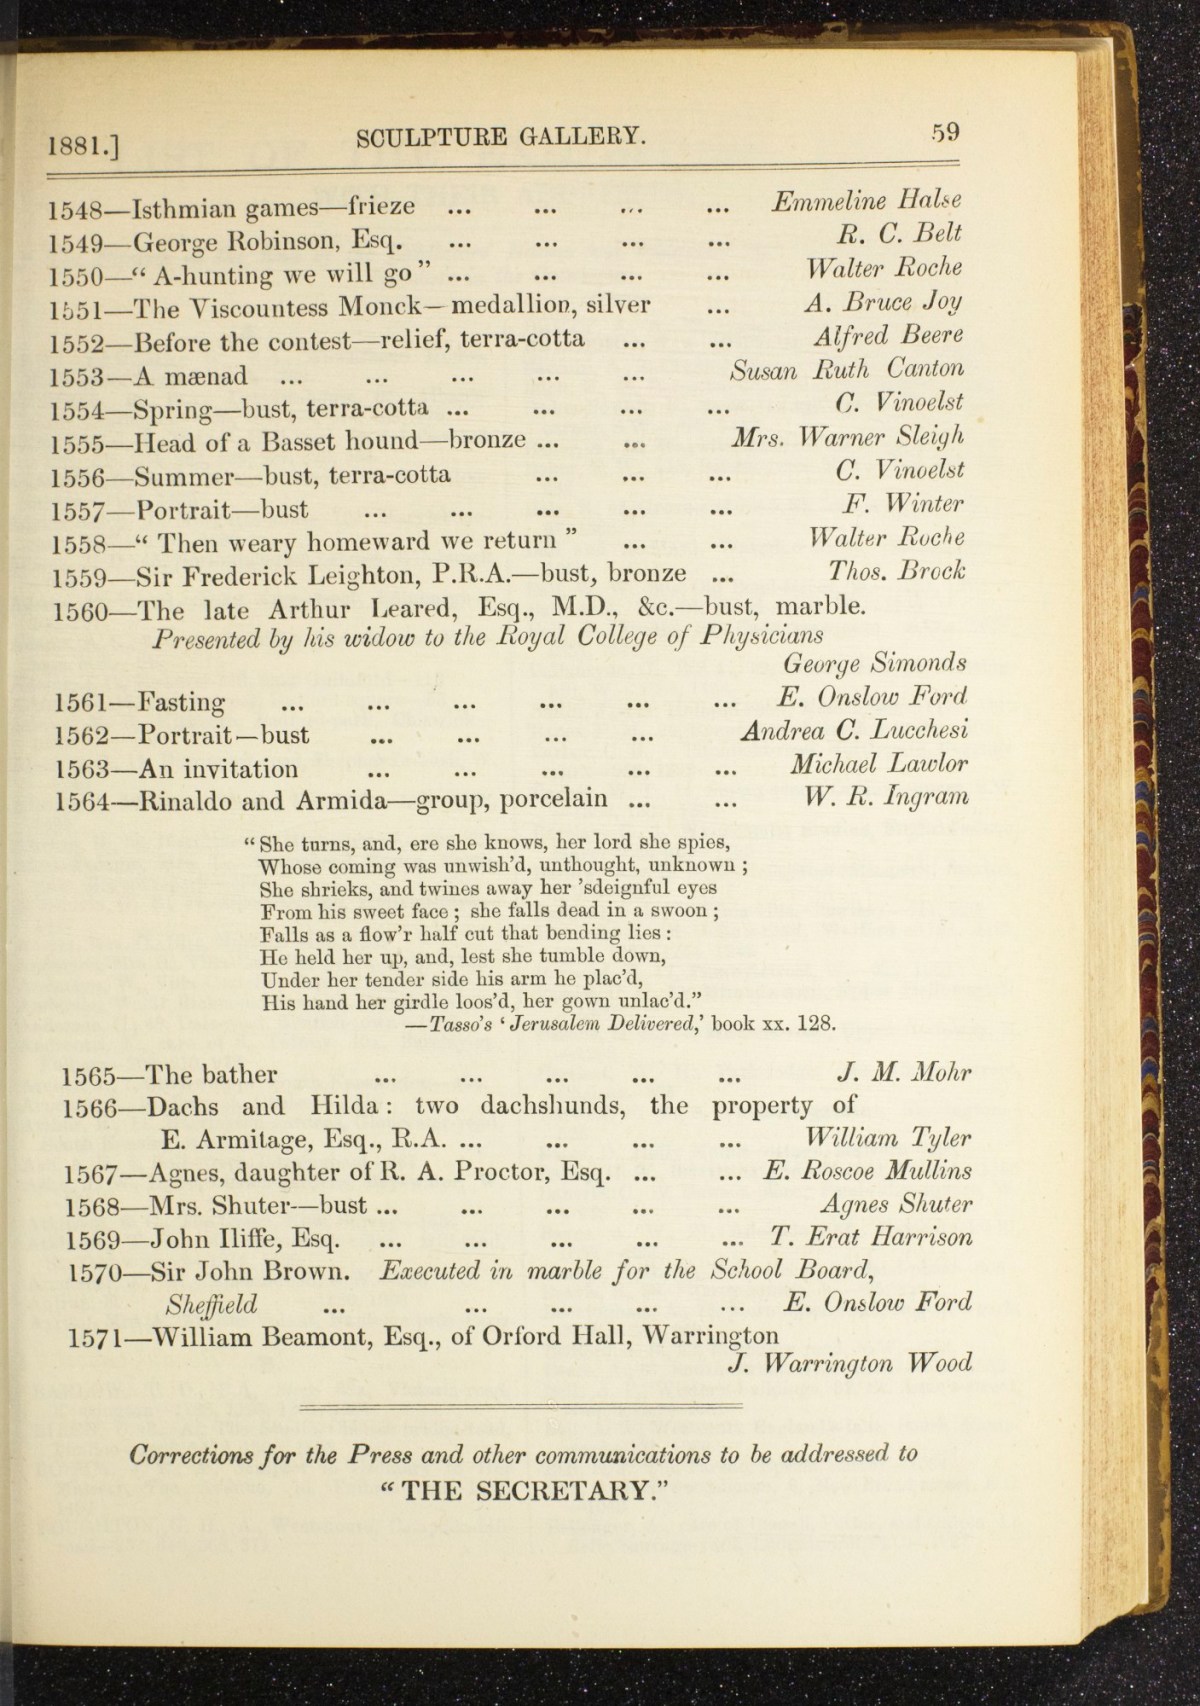 1881.] SCULPTURE GALLERY. 59
1548—Isthmian games—frieze ... ... ... ... Emmeline Halse
1549—George Robinson, Esq. ... ... ... ... R. C. Belt
1550—“ A-hunting we will go ” ... ... ... ... Walter Roche
1551—The Viscountess Monck—medallion, silver ... A. Bruce Joy
1552—Before the contest—relief, terra-cotta ... ... Alfred Beere
1553—A mænad ... ... ... ... ... Susan Ruth Canton
1554—Spring—bust, terra-cotta ... ... ... ... C. Vinoelst
1555—Head of a Basset hound—bronze ... ... Mrs. Warner Sleigh
1556—Summer—bust, terra-cotta ... ... ... C. Vinoelst
1557—Portrait—bust ... ... ... ... ... F. Winter
1558—“ Then weary homeward we return ” ... ... Walter Roche
1559—Sir Frederick Leighton, P.R.A.—bust, bronze ... Thos. Brock
1560—The late Arthur Leared, Esq., M.D., &c.—bust, marble.
Presented by his widow to the Royal College of Physicians
George Simonds
1561—Fasting ... ... ... ... ... ... E. Onslow Ford
1562—Portrait—bust ... ... ... ... Andrea C. Lucchesi
1563—An invitation ... ... ... ... ... Michael Lawlor
1564—Rinaldo and Armida—group, porcelain ... ... W. R. Ingram
“ She turns, and, ere she knows, her lord she spies,
Whose coming was unwish’d, unthought, unknown ;
She shrieks, and twines away her ’sdeignful eyes
From his sweet face ; she falls dead in a swoon ;
Falls as a flow’r half cut that bending lies :
He held her up, and, lest she tumble down,
Under her tender side his arm he plac’d,
His hand her girdle loos’d, her gown unlac’d.”
—Tasso’s ‘ Jerusalem Delivered,’ book xx. 128.
1565—The bather ... ... ... ... ... J. M. Mohr
1566—Dachs and Hilda : two dachshunds, the property of
E. Armitage, Esq., R.A. ... ... ... ... William Tyler
1567—Agnes, daughter of R. A. Proctor, Esq. ... ... E. Roscoe Mullins
1568—Mrs. Shuter—bust ... ... ... ... ... Agnes Shuter
1569—John Iliffe, Esq. ... ... ... ... ... T. Erat Harrison
1570—Sir John Brown. Executed in marble for the School Board,
Sheffield ... ... ... ... ... E. Onslow Ford
1571—William Beamont, Esq., of Orford Hall, Warrington
J. Warrington Wood
Corrections for the Press and other communications to be addressed to
“ THE SECRETARY.”